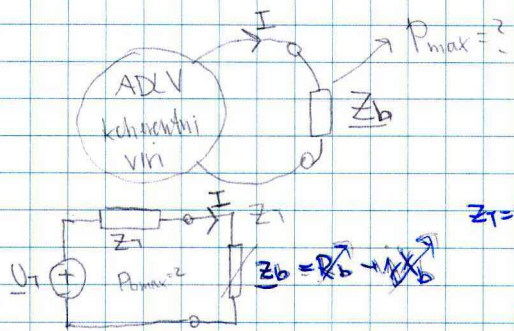 I
Pmax=?
ADLV
koherentni
viri
Zb
I
ZT
ZT
ZT=
UT
Pbmax=?
Zb = Rb